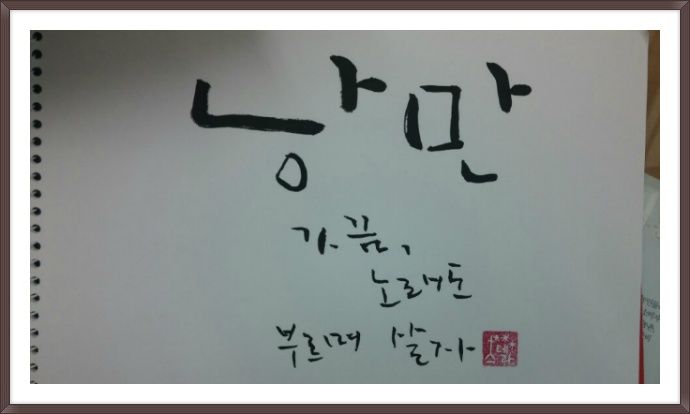 낭만
가끔,
노래도
부르며 살자